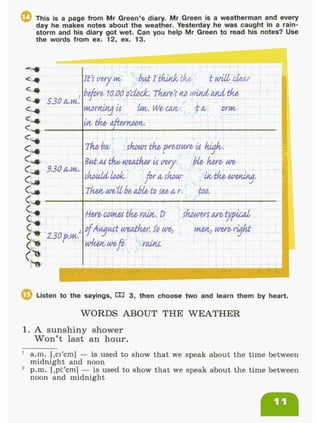 14 This is a page from Mr Green's diary. Mr Green is a weatherman and every
day he makes notes about the weather. Yesterday he was caught in a rain-
storm and his diary got wet. Can you help Mr Green to read his notes? Use
the words from ex. 12, ex. 13.
5.30 a.m.¹
It's very m but I think the t will clear
before 10.00 o'clock. There's no wind and the
morning is lm. We can t a orm
in the afternoon.
9.30 a.m.
The ba shows the pressure is high.
But as the weather is very ble here we
should look for a show in the evening.
Then we'll be able to see a r too.
2.30 p.m.²
Here comes the rain. D showers are typical
of August weather. So we, men, were right
when we fo rains.
15 Listen to the sayings, 3, then choose two and learn them by heart.
WORDS ABOUT THE WEATHER
1. A sunshiny shower
Won't last an hour.
¹ a.m. [ˌeɪˈem] — is used to show that we speak about the time between
midnight and noon
² p.m. [ˌpiːˈem] — is used to show that we speak about the time between
noon and midnight
11